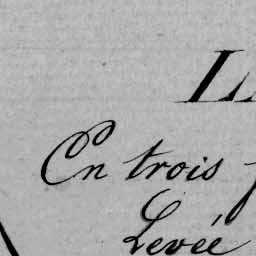 En trois
Levée